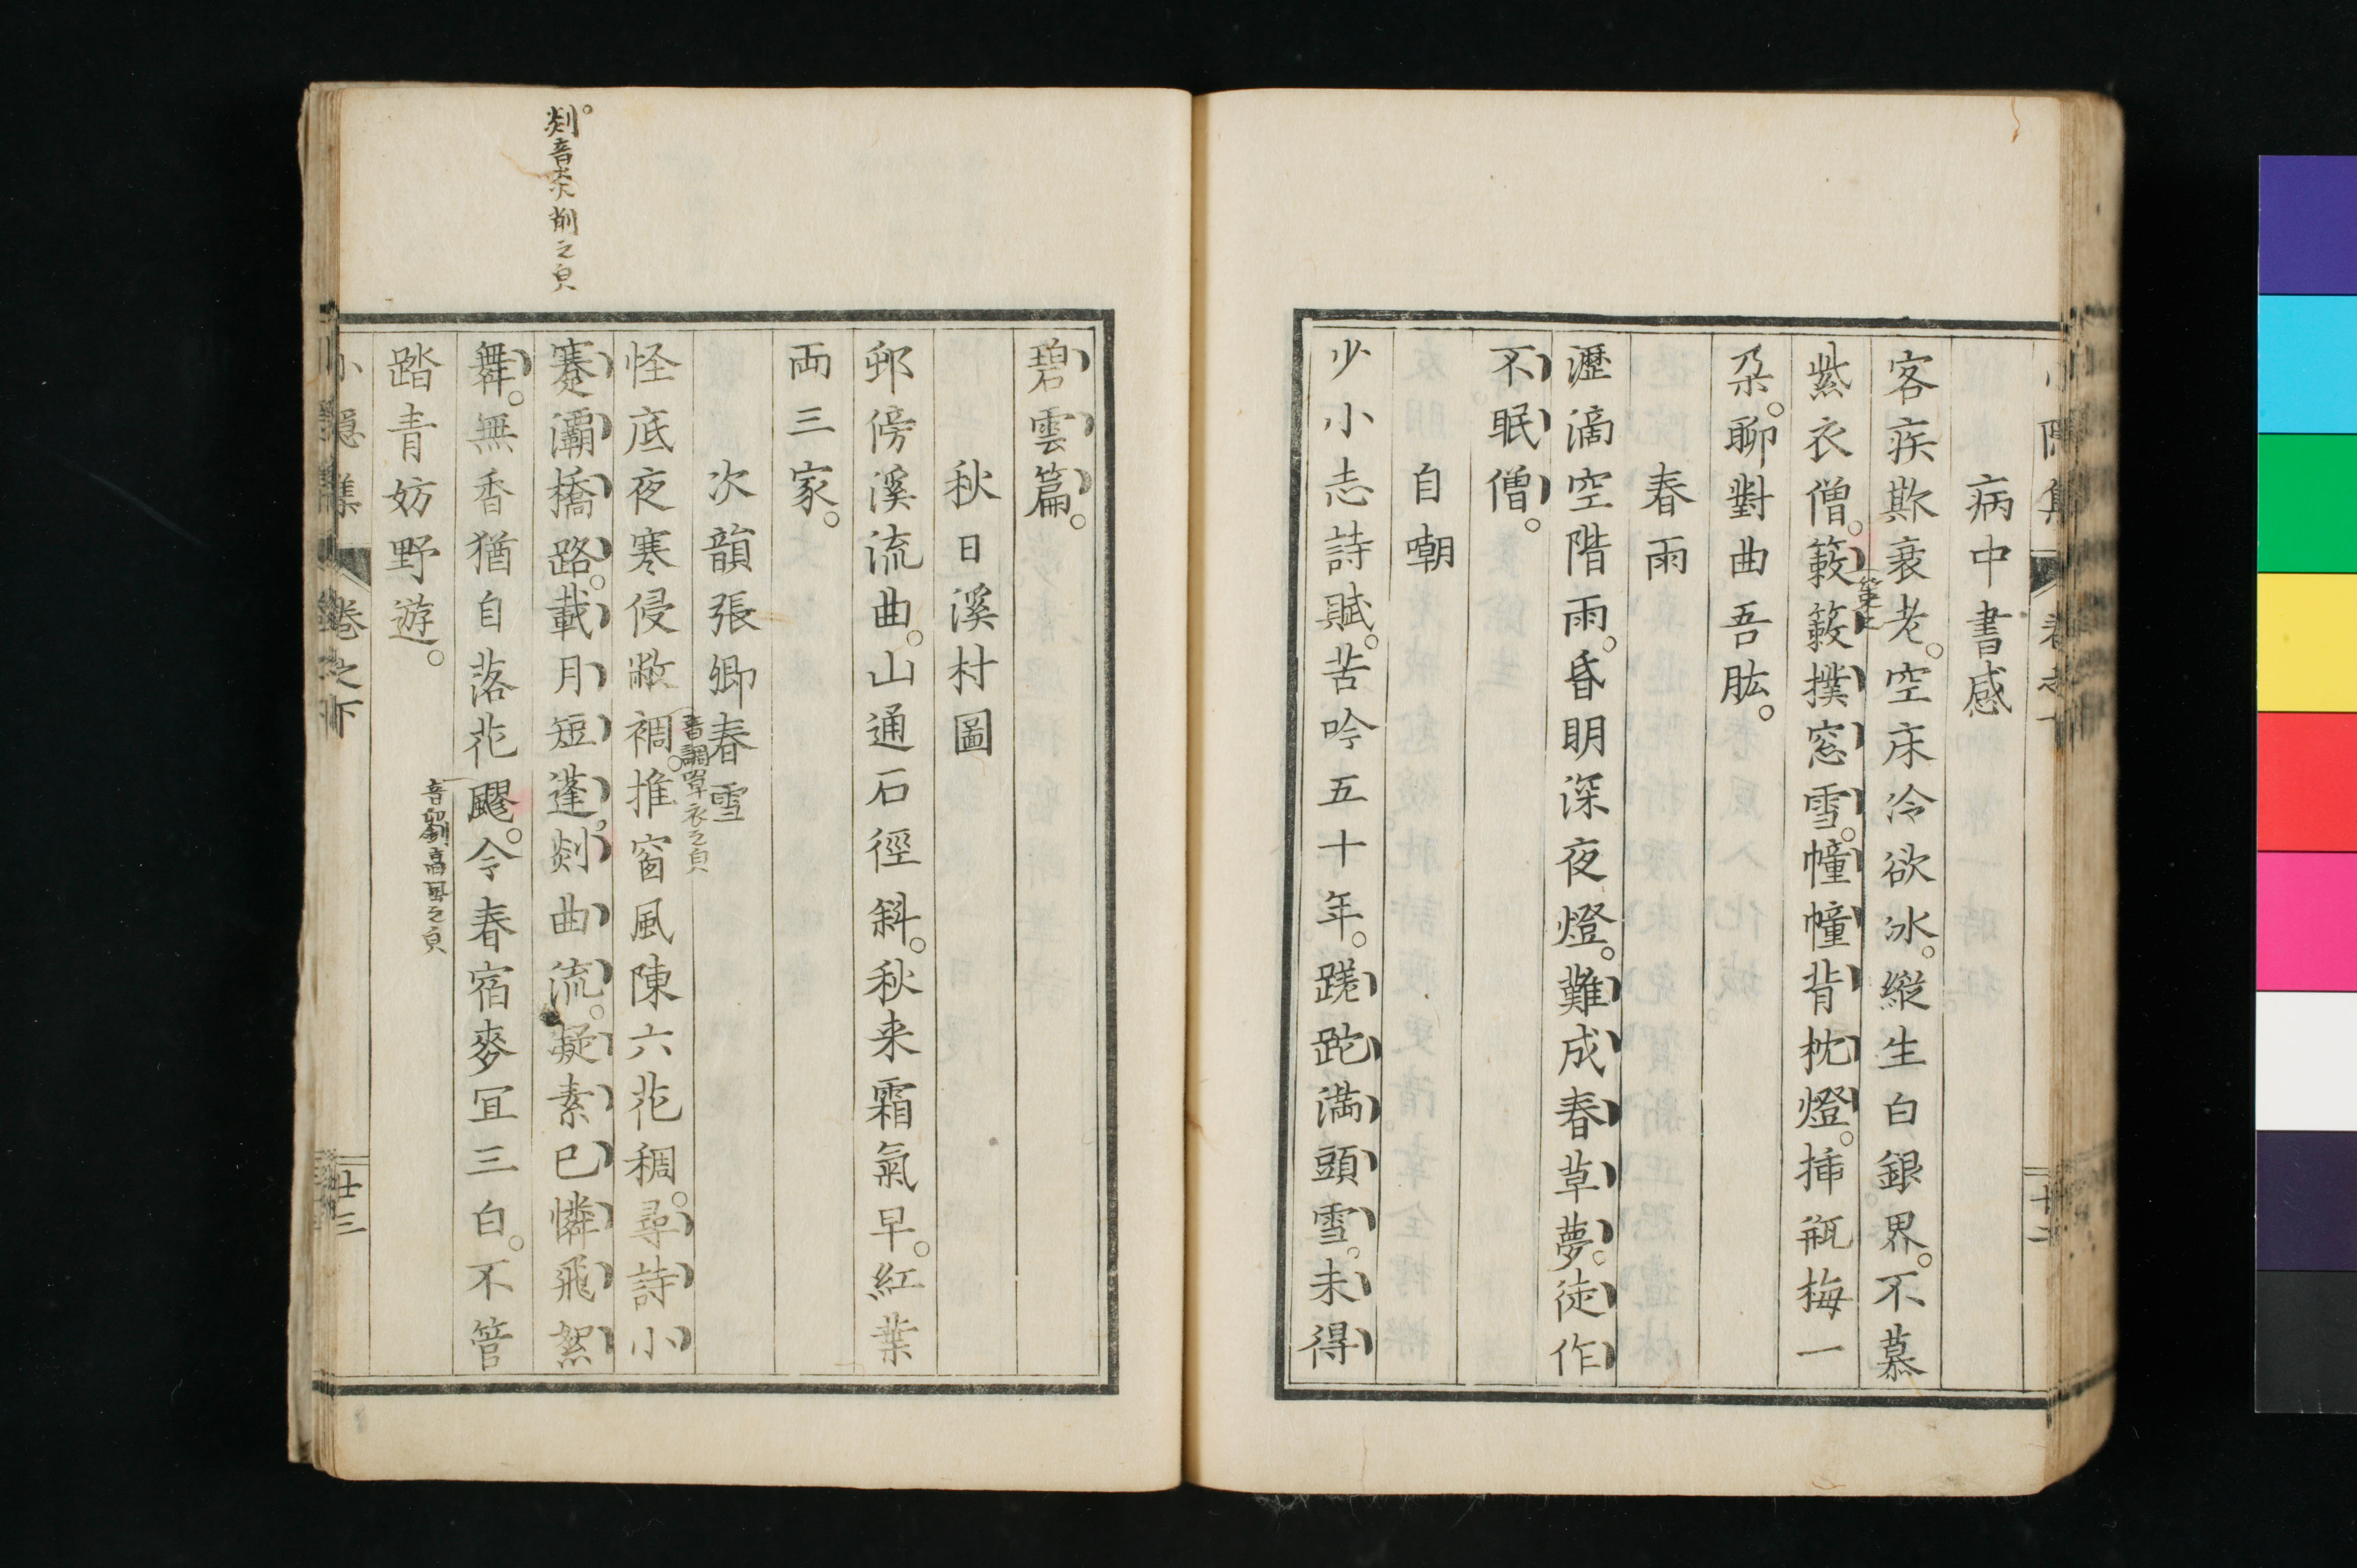 病中書感
客疾欺衰老。空床冷欲冰。縱生白銀界。不慕
紫衣僧。簌簌撲窓雪。幢幢背枕燈。揷瓶梅一
朶。聊對曲吾肱。
春雨
瀝滴空階雨。昏明深夜燈。難成春草夢。徒作
不眠僧。
自嘲
少小志詩賦。苦吟五十年。蹉跎滿頭雪。未得
碧雲篇。
秋日溪村圖
邨傍溪流曲。山通石徑斜。秋来霜氣早。紅葉
両三家。
次韻張卿春雪
怪底夜寒侵敝裯。推窗風陳六花稠。尋詩小
蹇灞橋路。載月短蓬剡曲流。凝素已憐飛絮
舞。無香猶自落花飂。今春宿麥冝三白。不管
踏青妨野遊。
音調單衣之皃
音劉高風之皃
剡音琰削之皃
小隱集
卷之下
廿三